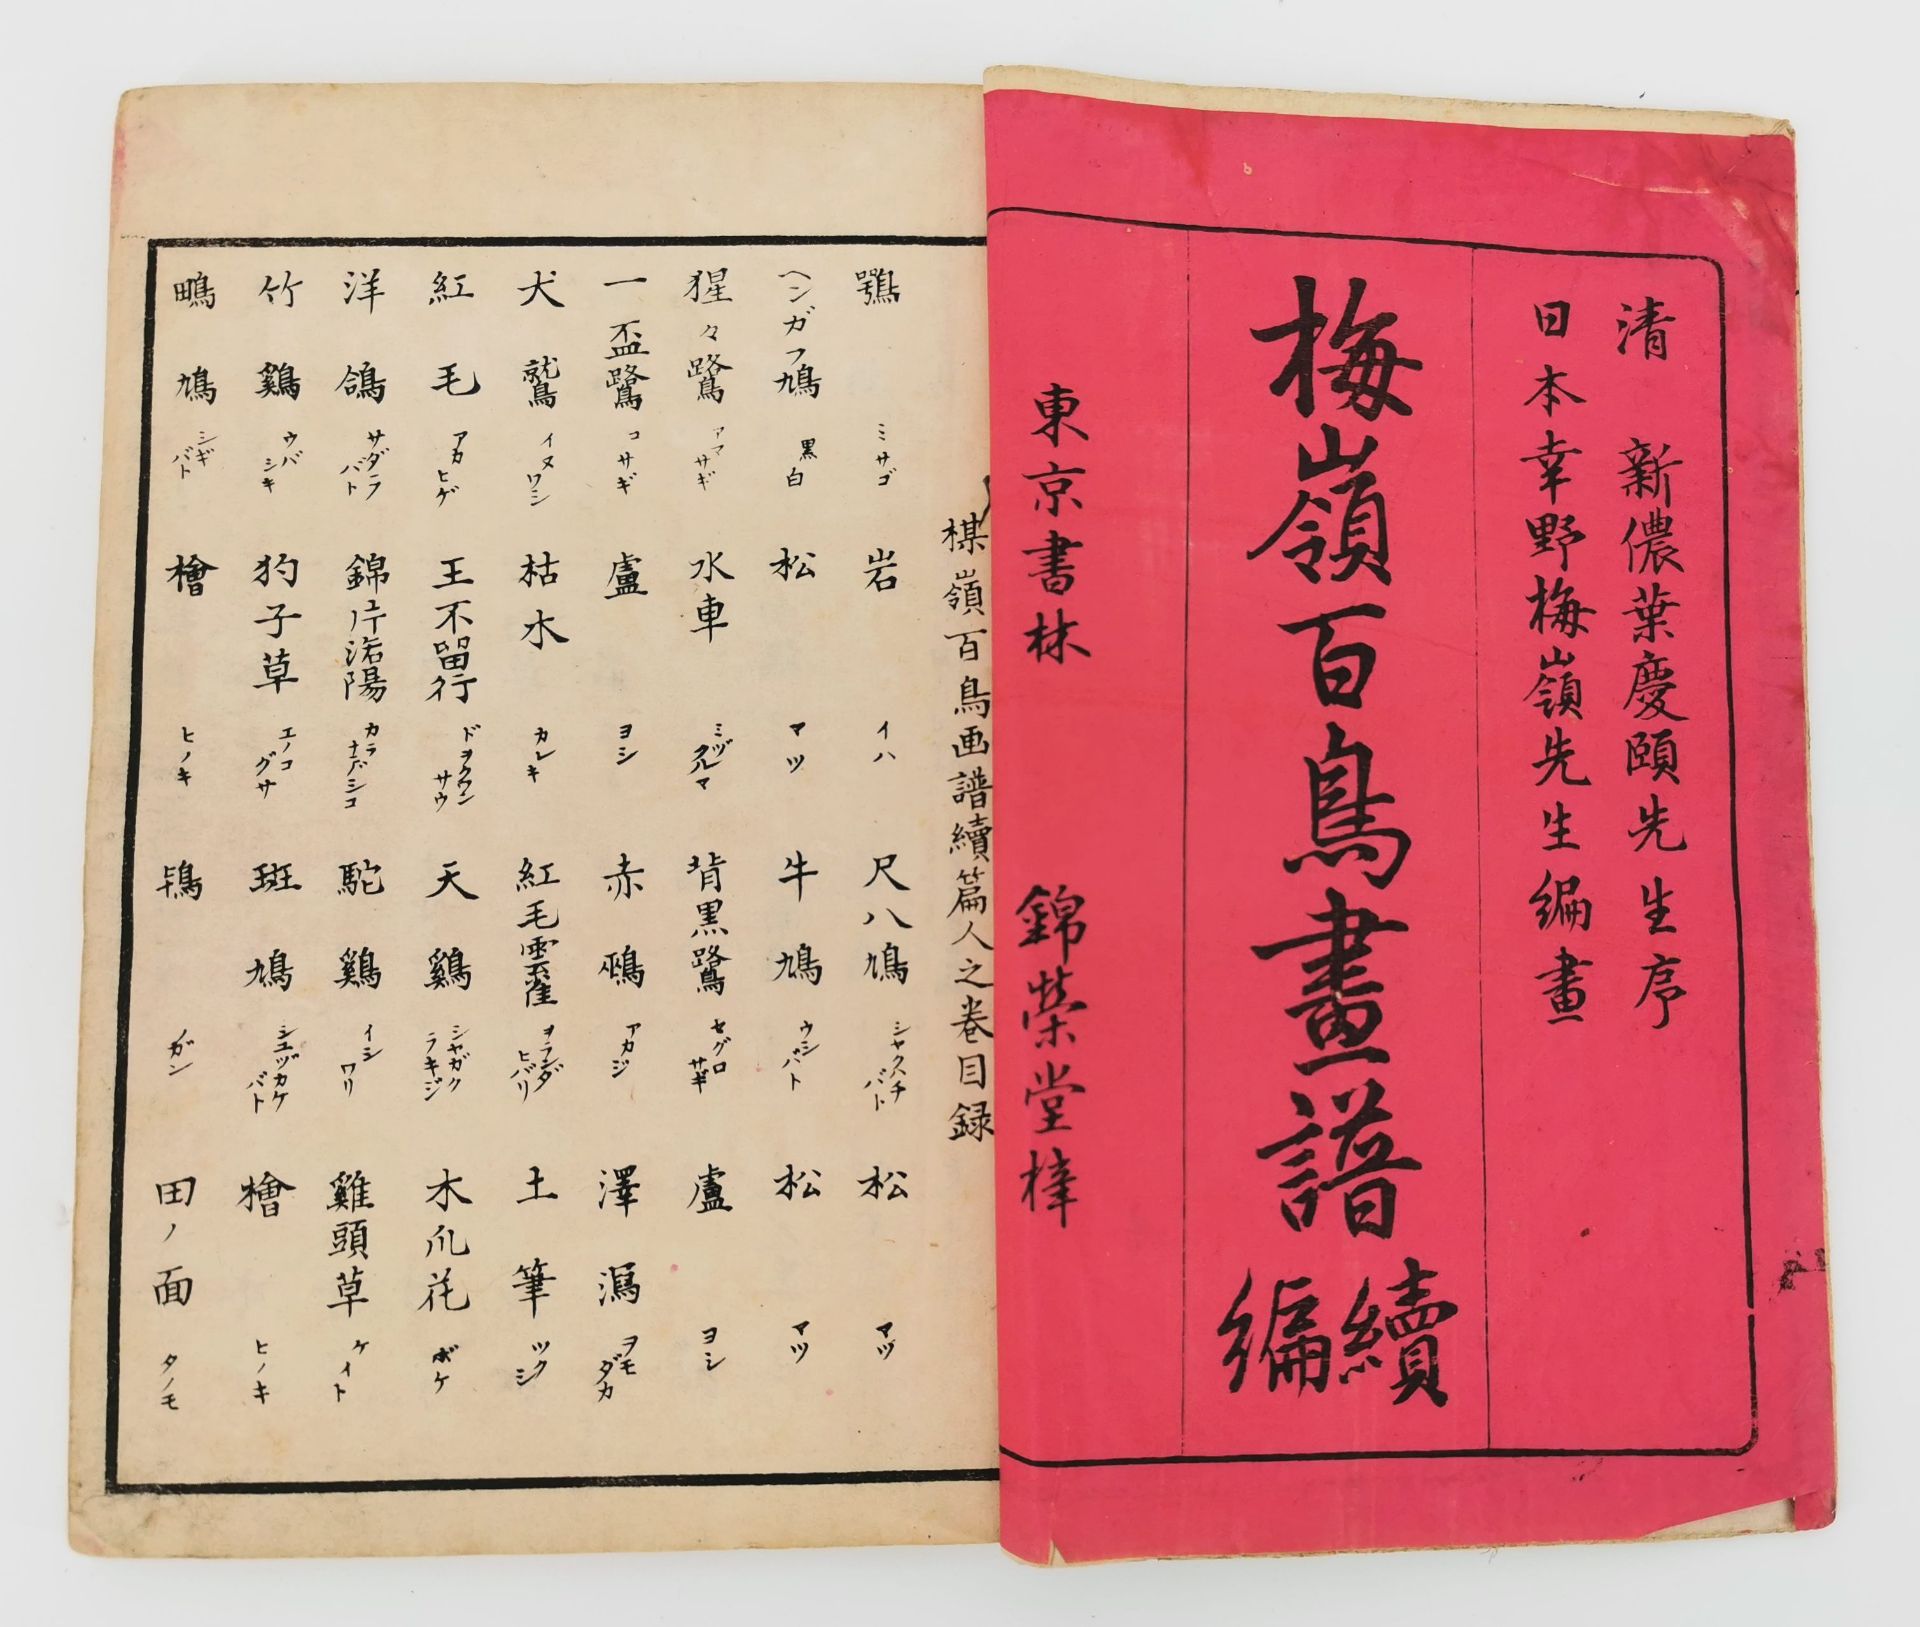 清 新儂葉慶頤先生序
日本幸野梅嶺先生編畫
梅嶺百鳥畫譜
續編
東京書林 錦榮堂梓
楳嶺百鳥画譜續篇人之巻目録
鶚 ミサゴ 岩 イハ 尺八鳩 シャクハチバト 松 マツ
ヘンガラ鳩 黒白 松 マツ 牛鳩 ウシバト 松 マツ
猩々鷺 アマサギ 水車 ミヅクルマ 背黒鷺 セグロサギ 蘆 ヨシ
一盃鷺 コサギ 蘆 ヨシ 赤鵐 アカジ 澤瀉 ヲモダカ
犬鷲 イヌワシ 枯木 カレキ 紅毛雲雀 ヲランダヒバリ 土筆 ツクシ
紅毛 アカヒゲ 王不留行 ドヲクワンサウ 天鷄 シャガクラキジ 木爪花 ボケ
洋鴿 サダラバト 錦 洛陽 カラナデシコ 駝鷄 イシワリ 雞頭草 ケイト
竹鷄 ウバシギ 狗子草 エノコグサ 斑鳩 シユヅカケバト 檜 ヒノキ
鴫鳩 シギバト 檜 ヒノキ 鳫 ガン 田ノ面 タノモ